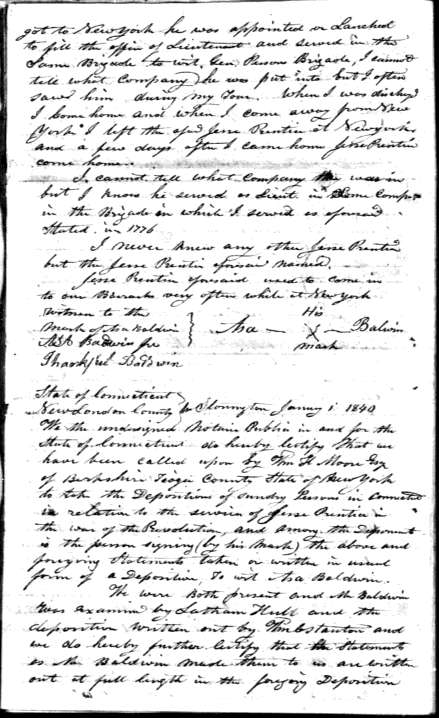 got to New York he was appointed or
to fill the office of Lieutenant and served in the
Same Brigade to wit, Gen Parsons Brigade, I cannot
tell what Company he was put into but I often
saw him during my Tour. When I was discharged
I Come home and when I come away from New
York I left the afsd Jesse Prentice at New york
and a few days after I came home Jesse Prentice
come home.
I cannot tell what Company he was in
but I know he served as Lieut in Some Company
in the Brigade in which I served as aforesaid
Stated in 1776
I never knew any other Jesse Prentice
but the Jesse Prentice aforesaid named.
Jesse Prentice aforesaid used to come in
to our Barracks very often while at New York
Witness to the
mark of Asa Baldwin
Asa Baldwin Jr
Thankful Baldwin
His
Asa — X — Balwin
mark
State of Connecticut
New London County ss Stonington January 1 1840
We the undersigned Notaries Public in and for the
State of Connecticut do hereby Certify that we
have been called upon by Wm H Moore Esq
of Berkshire Tioga County State of New York
to take the Depositions of sundry Persons in Connecticut
in relation to the service of Jesse Prentice in
the war of the Revolution, and among the Deponent
is the person signing (by his Mark) the above and
foregoing Statements taken or written in usual
form of a Deposition, To wit Asa Baldwin.
We were Both present and Mr Baldwin
was examined by Latham Hull and the
deposition written out by Stanton and
we do hereby further Certify that the Statements
as Mr Baldwin made them to us are written
out at full length in the foregoing Deposition